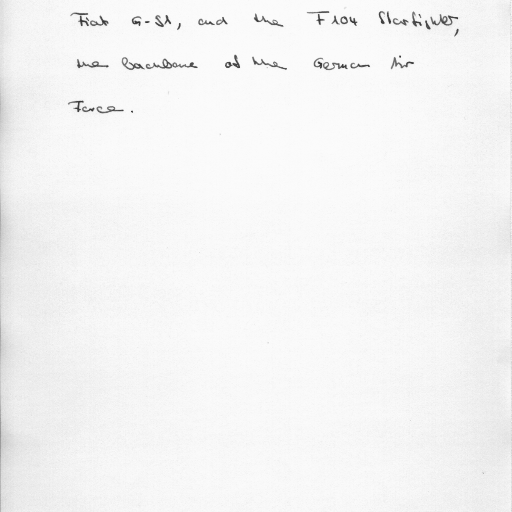 Fiat G-91, and the F 104 Starfighter,
the backbone of the German Air
Force.